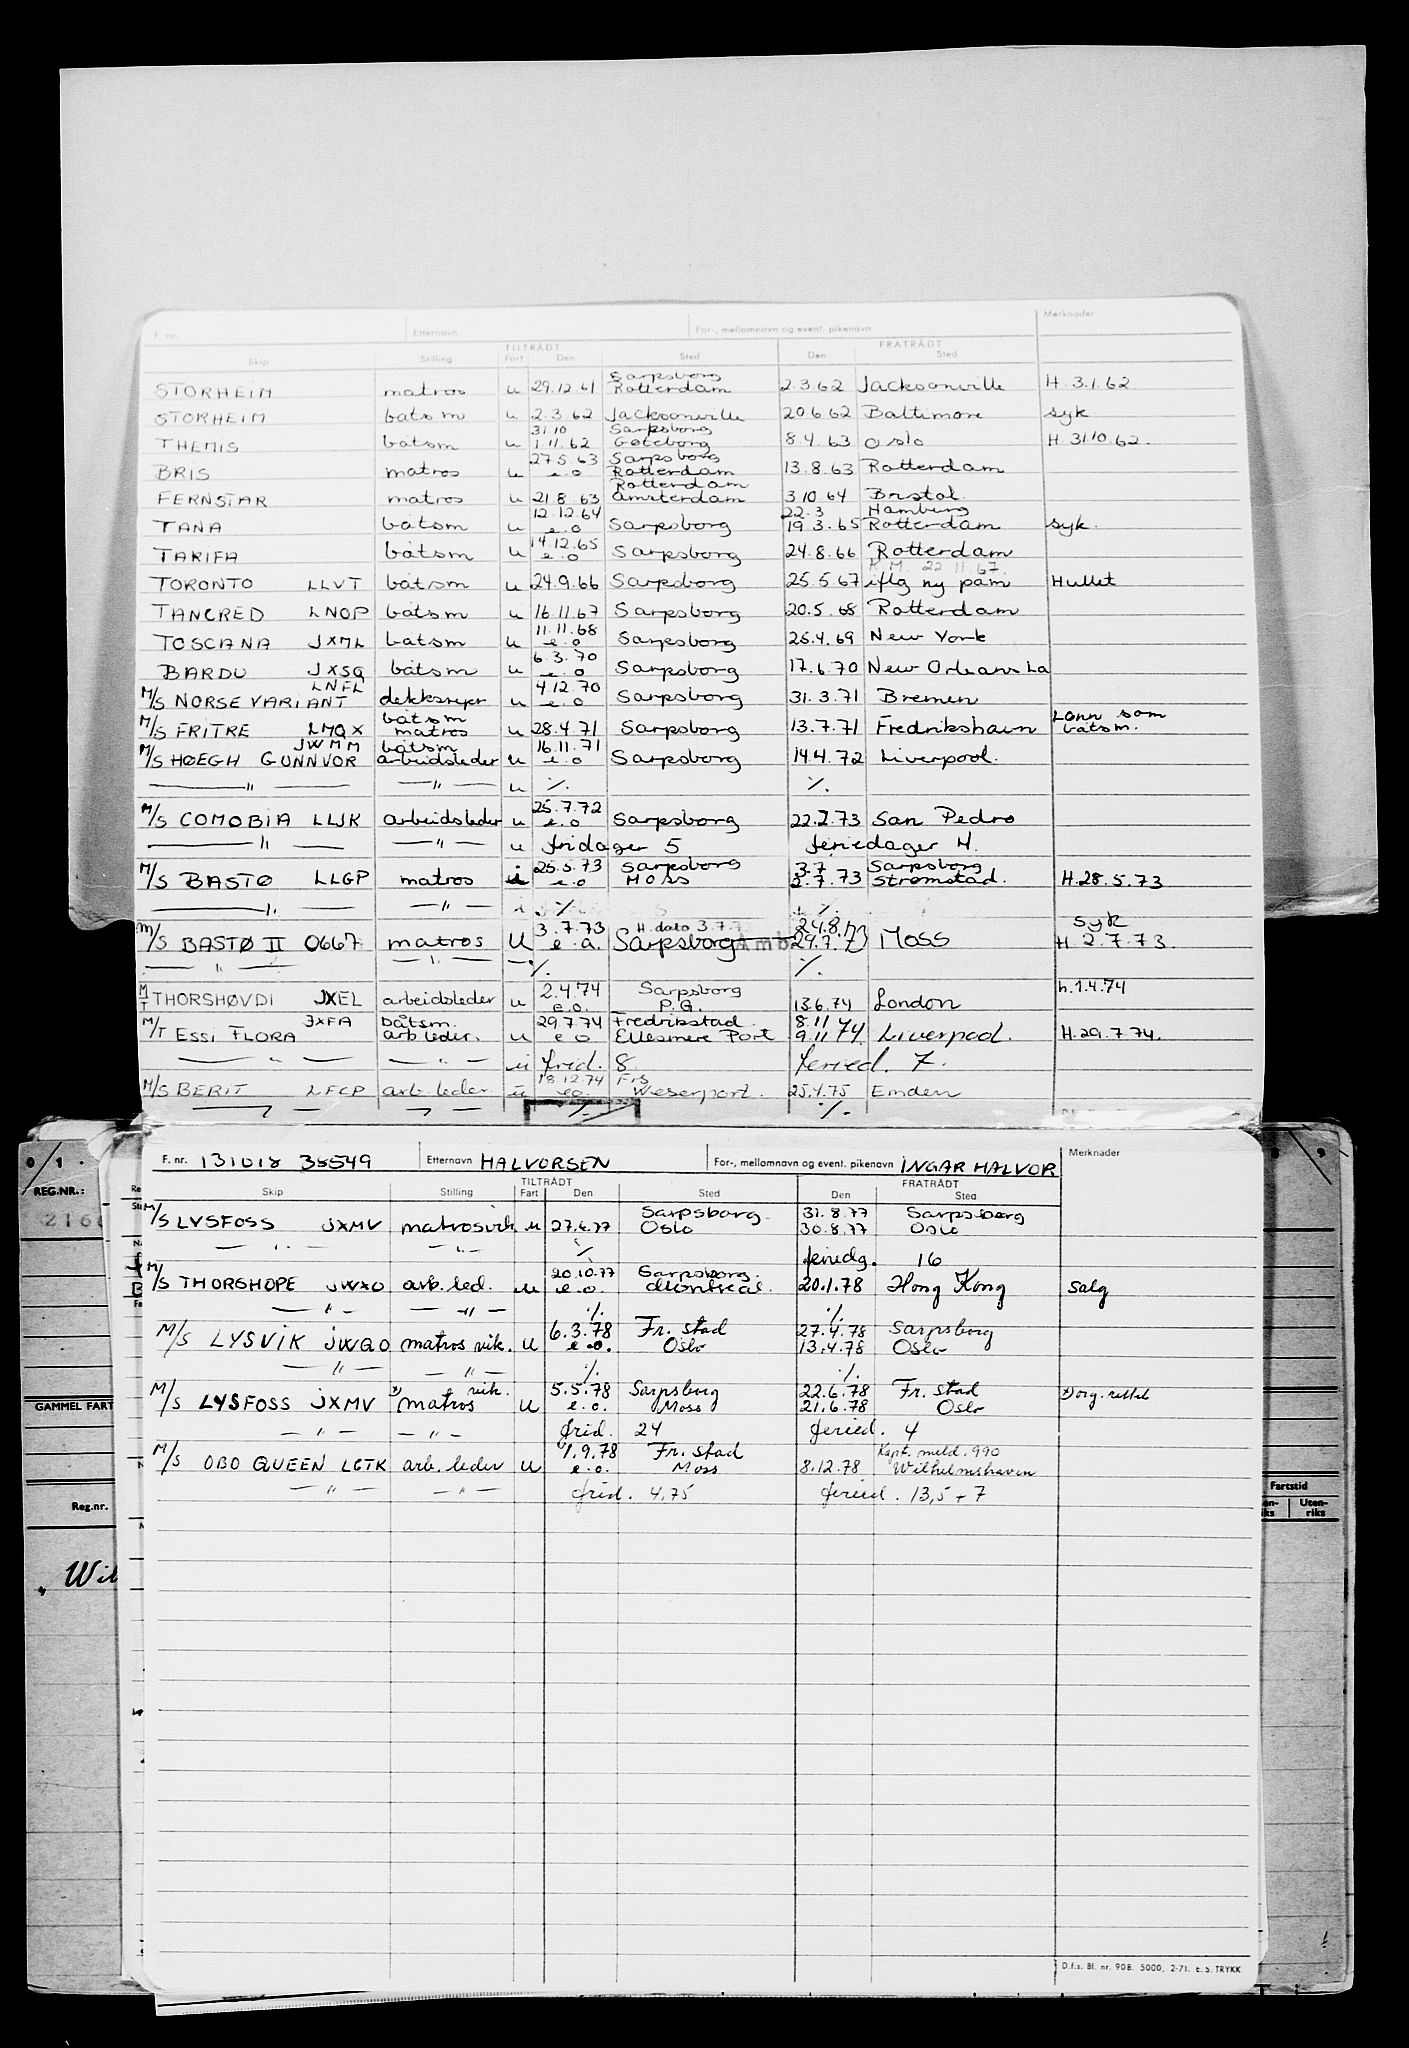 F. nr. Etternavn For-, mellomnavn og event. pikenavn Merknader
TILTRÅDT FRATRÅDT
Skip Stilling Fart Den Sted Den Sted
Sarpsborg
STORHEIM matros u 29.12.61 Rotterdam 2.3.62 Jacksonville H. 3.1.62
STORHEIM båtsm u 2.3.62 Jacksonville 20.6.62 Baltimore syk
31.10 Sarpsborg
THEMIS båtsm u 1.11.62 Gøteborg 8.4.63 Oslo H. 31.10.62.
27.5.63 Sarpsborg
BRIS matros u e.o Rotterdam 13.8.63 Rotterdam
Rotterdam
FERNSTAR matros u 21.8.63 Amsterdam 3.10.64 Bristol
12.12.64 22.3 Hamburg
TANA båtsm u e.o Sarpsborg 19.3.65 Rotterdam syk.
14.12.65
TARIFA båtsm u e.o Sarpsborg 24.8.66 Rotterdam
R.M. 22.11.67.
TORONTO LLVT båtsm u 24.9.66 Sarpsborg 25.5.67 iflg ny påm Hullet
TANCRED LNOP båtsm u 16.11.67 Sarpsborg 20.5.68 Rotterdam
11.11.68
TOSCANA JXML båtsm u e.o Sarpsborg 25.4.69 New York
6.3.70
BARDU JXSQ båtsm u e.o Sarpsborg 17.6.70 New Orleans La
LNFL 4.12.70
M/S NORSE VARIANT dekksrepr u e.o Sarpsborg 31.3.71 Bremen
båtsm Lønn som
M/S FRITRE LMQX matros u 28.4.71 Sarpsborg 13.7.71 Fredrikshavn båtsm.
JWMM båtsm 16.11.71
M/S HØEGH GUNNVOR arbeidsleder u e.o Sarpsborg 14.4.72 Liverpool.
— " — — " — u ./. ./.
25.7.72
M/S COMOBIA LLJK arbeidsleder u e.o Sarpsborg 22.2.73 San Pedro
— " — — " — u fridager 5 feriedager 4.
25.5.73 Sarpsborg 3.7 Sarpsborg
M/S BASTØ LLGP matros i e.o Moss 2.7.73 Strømstad. H.28.5.73
— " — — " — i ./. ./.
3.7.73 H. dato 3.7.7 24.8.73 syk
M/S BASTØ II 0667 matros U e.o. Sarpsborg 29.7. Moss H 2.7.73.
— " — — " — — ./. ./.
2.4.74 Sarpsborg h.1.4.74
M/T THORSHØVDI JXEL arbeidsleder u e.o. P.G. 13.6.74 London
JXFA båtsm. 29.7.74 Fredrikstad 8.11
M/T ESSI FLORA arb leder. u e o Ellesmere Port 9.11 74 Liverpool. H.29.7.74.
— " — — " — u frid. 8. feried. 7.
18.12.74 Frs
M/S BERIT LFCP arb. leder. u eo. Weserport. 25.4.75 Emden
— " — — " — ./. ./.
F. nr. 131018 35549 Etternavn HALVORSEN For-, mellomnavn og event. pikenavn INGAR HALVOR Merknader
TILTRÅDT FRATRÅDT
Skip Stilling Fart Den Sted Den Sted
Sarpsborg. 31.8.77 Sarpsborg
M/S LYSFOSS JXMV matrosvik u 27.6.77 Oslo 30.8.77 Oslo
— " — — " — ./. feriedg. 16
20.10.77 Sarpsborg.
M/S THORSHOPE JWXO arb. led. u e.o. Montreal. 20.1.78 Hong Kong Salg
— " — — " — ./. ./.
6.3.78 Fr. stad 27.4.78 Sarpsborg
M/S LYSVIK JWGO matros vik. u e.o. Oslo 13.4.78 Oslo
— " — — " — ./. ./.
vik. 5.5.78 Sarpsborg 22.6.78 Fr. stad
M/S LYSFOSS JXMV matros u e.o. Moss 21.6.78 Oslo
— " — — " — frid. 24 feried. 4
1.9.78 Fr. stad Kapt. meld. 990
M/S OBO QUEEN LCTK arb. leder u e.o. Moss 8.12.78 Wilhelmshaven
— " — — " — frid. 4,75 feried. 13,5 + 7
D.f.s. Bl. nr. 908. 5000. 2-71. E.S. TRYKK
REG.NR.:
GAMMEL FART
Reg.nr.
Wil
Fartstid
Uten-
riks